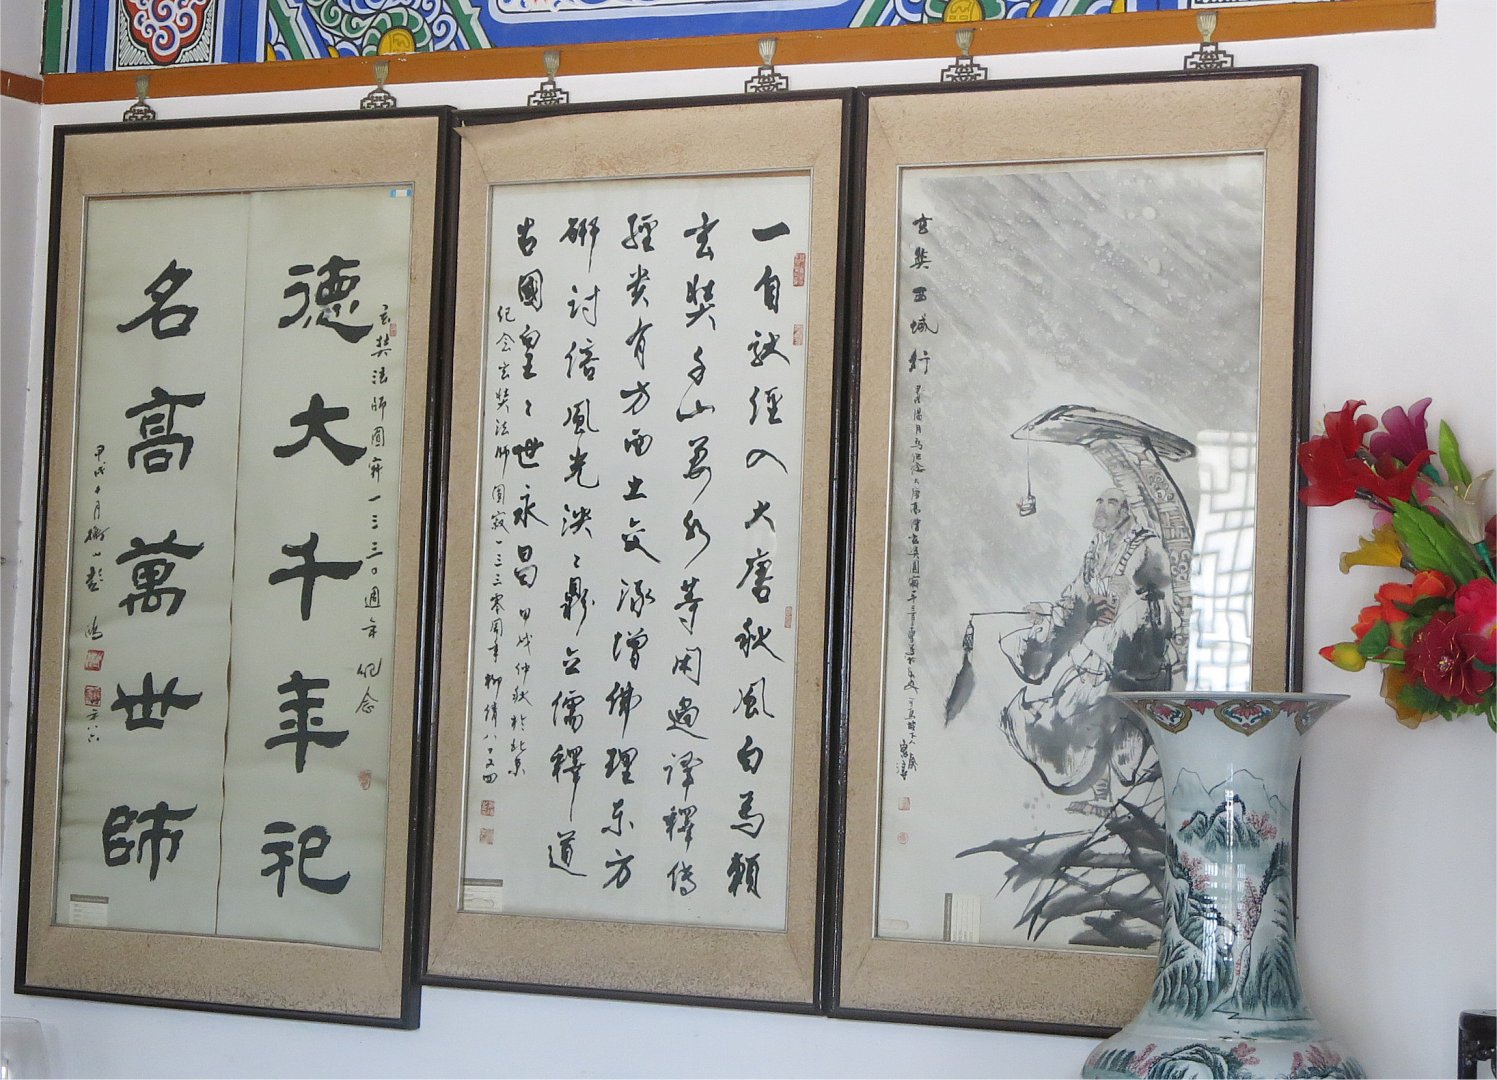 玄奘西域行
一自馱經入大唐秋風白馬賴
玄奘千山萬水等閑過譯釋傳
經貴有方西土文添增佛理东方
研討倍風光泱〻鼎立儒釋道
古國皇〻世永昌 甲戌仲秋於北京
紀念玄奘法師圓寂一三三零周年柳倩八十又四
玄奘法師圓寂一三三〇週年紀念
德大千年祀
名高萬世師
甲戌十月衡山彭鴻